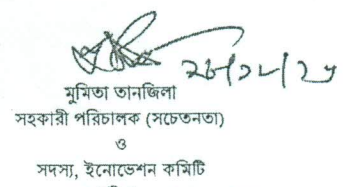 মুমিতা তানজিলা
সহকারী পরিচালক (সচেতনতা)
ও
সদস্য, ইনোভেশন কমিটি